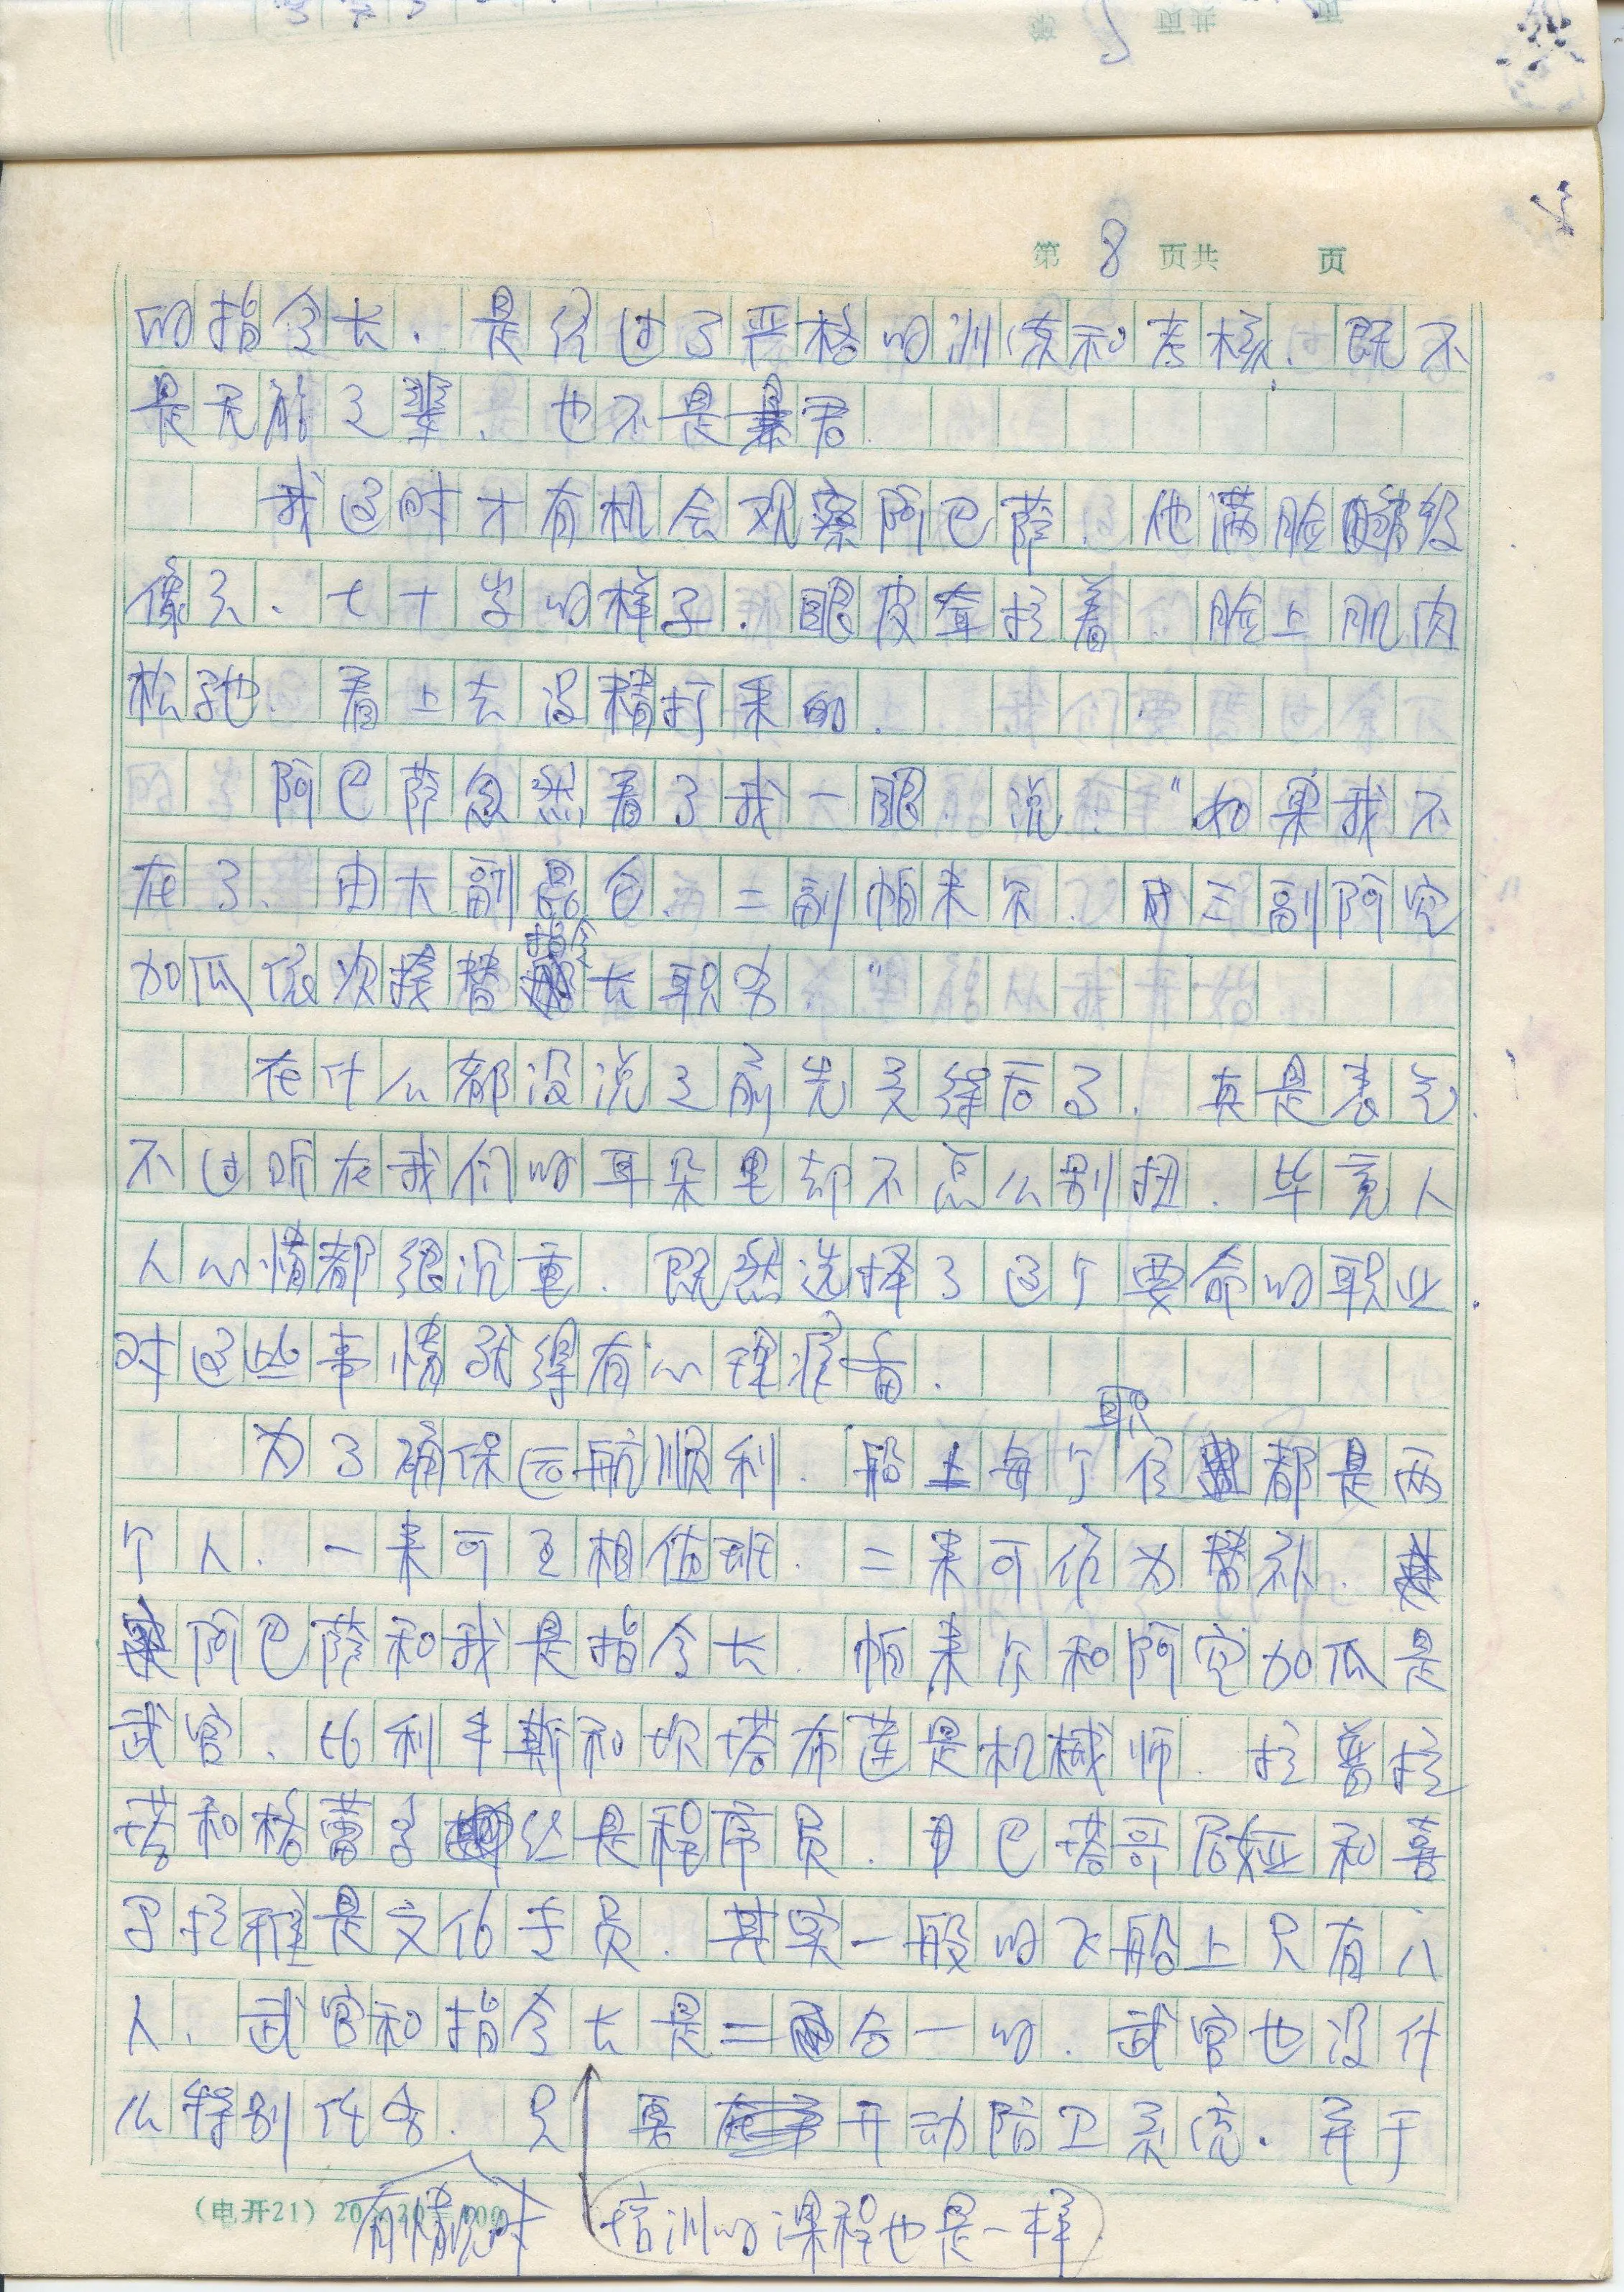 第 8 页共 页
的指令长．是经过了严格的训练和考核．既不
是无能之辈．也不是暴君．
我这时才有机会观察阿巴萨．他满脸
像 ．七十岁的样子．眼皮耷拉着．脸上肌肉
松弛．看上去没精打采的．
阿巴萨忽然看了我一眼．说．“如果我不
在了．由大副昆仑．二副帕米尔．三副阿空
加瓜依次接替指令长职务．”
在什么都没说之前先交待后了．真是丧气．
不过听在我们的耳朵里却不怎么别扭．毕竟人
人心情都很沉重．既然选择了这个要命的职业．
对这些事情就得有心理准备．
为了确保远航顺利．船上每个职位都是两
个人．一来可互相值班．二来可作为替补．
阿巴萨和我是指令长．帕米尔和阿空加瓜是
武官．比利牛斯和坎塔布连是机械师．拉普拉
塔和格兰 丝是程序员．巴塔哥尼娅和喜
马拉雅是文化专员．其实一般的飞船上只有八
人．武官和指令长是二合一的．武官也没什
么特别任务．只 要 开动防卫系统．弃于
有情况时 培训的课程也是一样
（电开21）20×20＝400